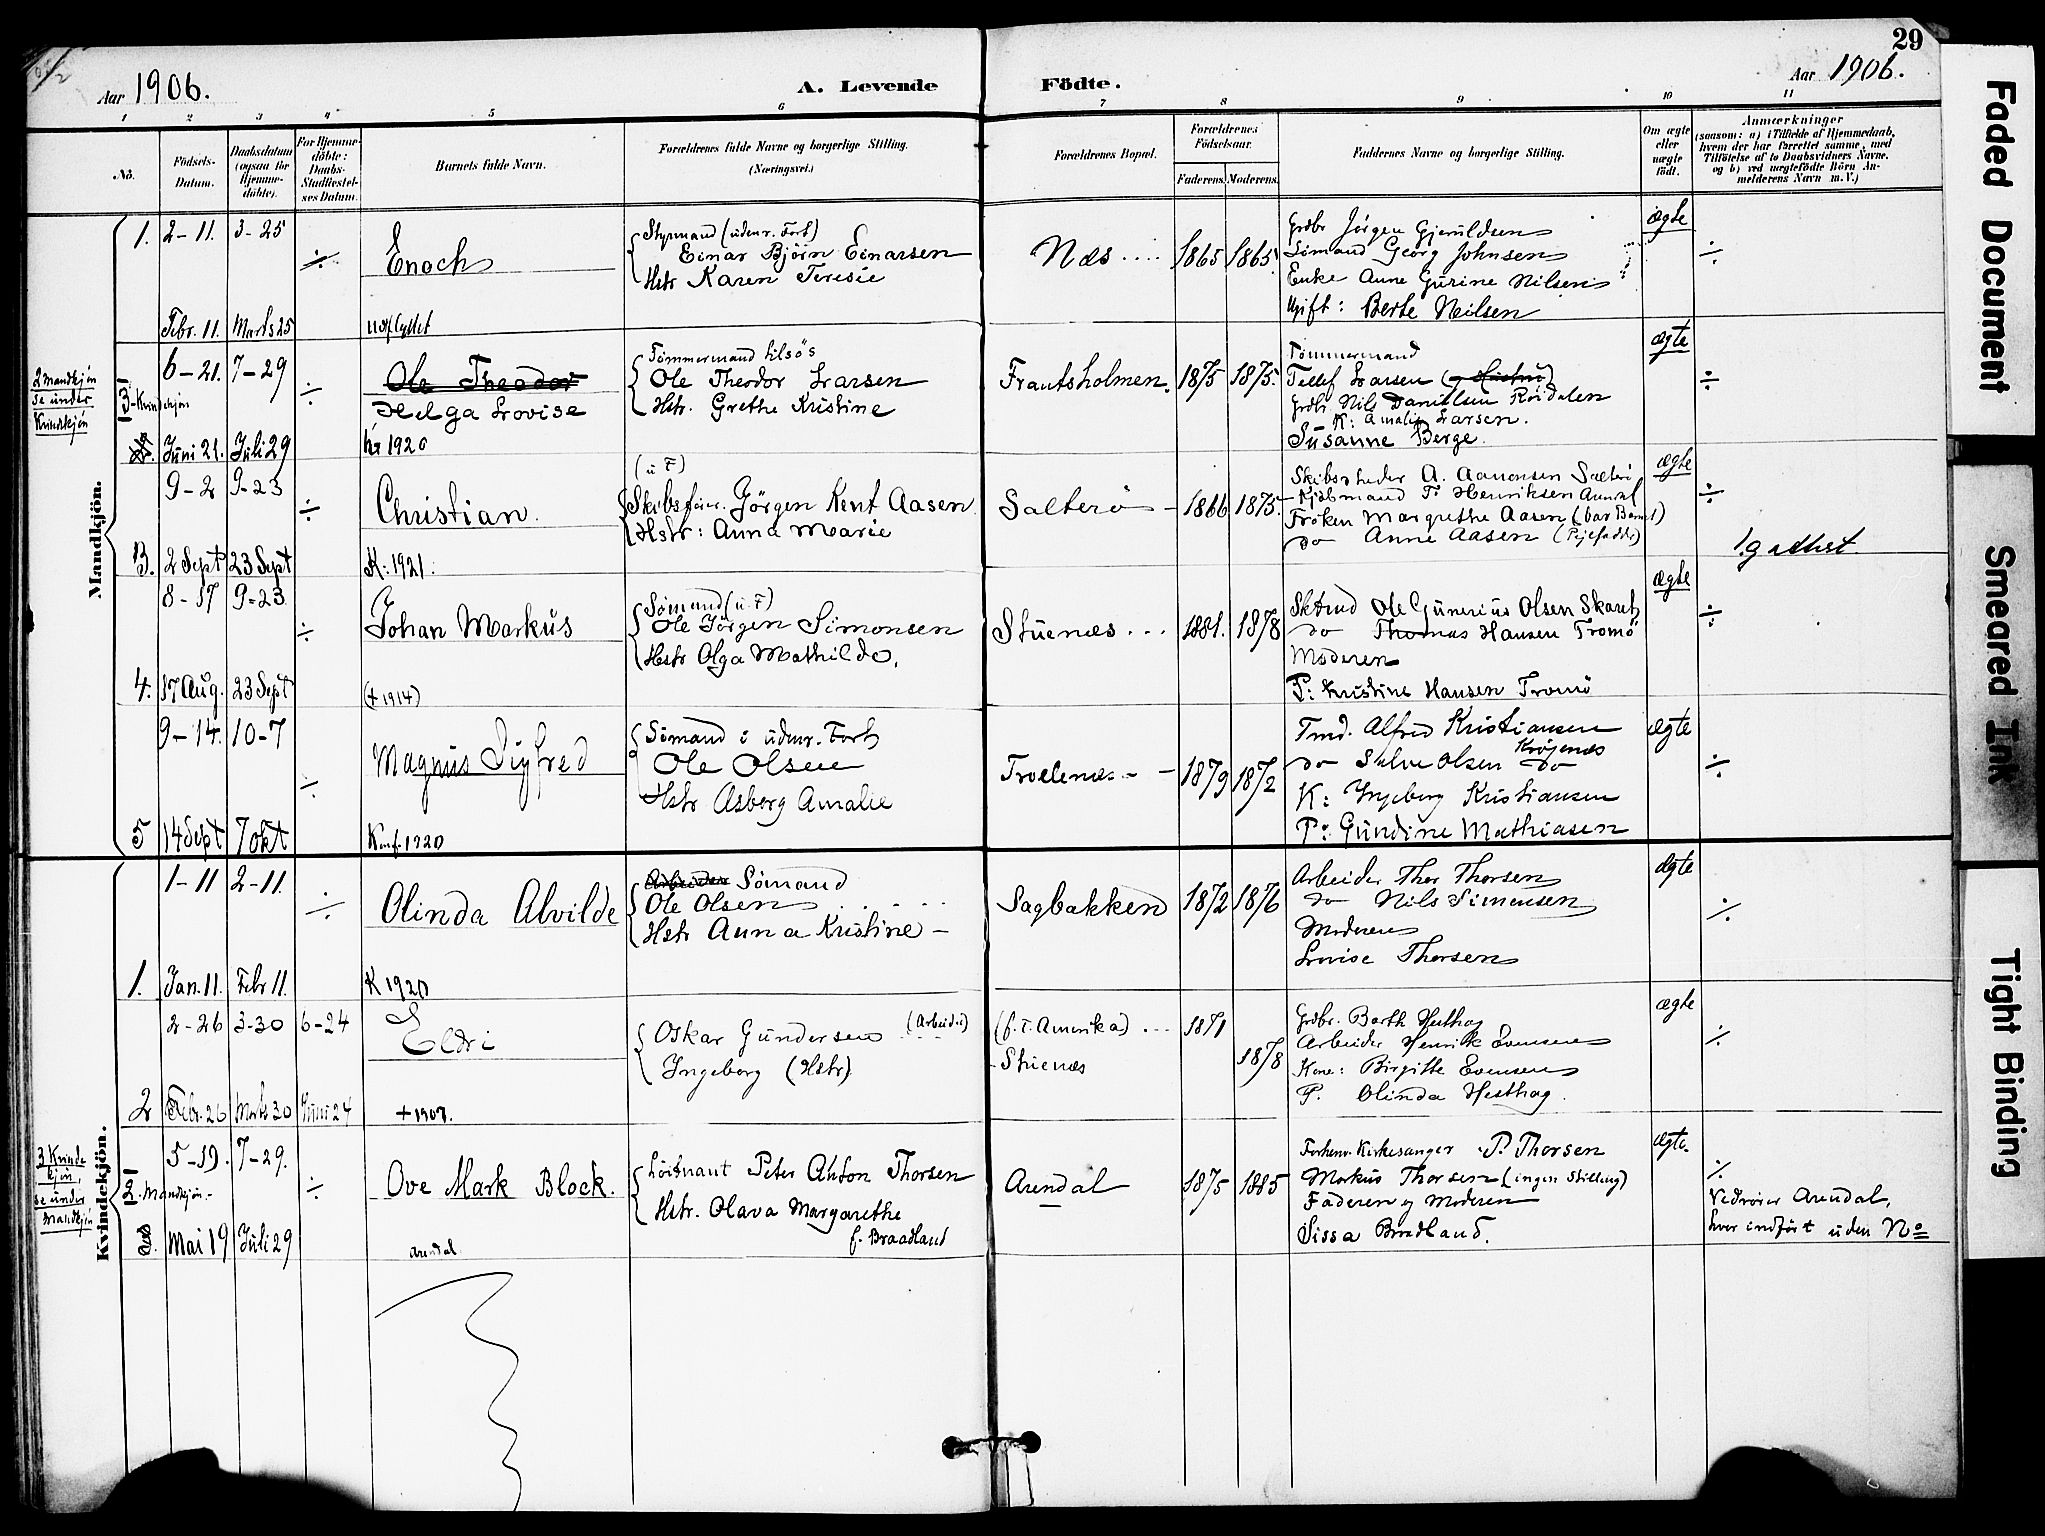 29
Aar 1906.
A. Levende
Födte.
Aar 1906.
1 2 3 4 5 6 7 8 8 9 10 11
No.
Födsels-
Datum.
Daabsdatum
(ogsaa for
Hjemme-
döbte).
For Hjemme-
döbte:
Daabs-
Stadfæstel-
ses Datum.
Barnets fulde Navn.
Forældrenes fulde Navne og borgerlige Stilling.
(Næringsvei.)
Forældrenes Bopæl.
Forældrenes
Födselsaar.
Faderens. Moderens.
Faddernes Navne og borgerlige Stilling.
Om ægte
eller
uægte
födt.
Anmærkninger
(saasom: a) i Tilfælde af Hjemmedaab,
hvem der har forrettet samme, med
Tilföielse af to Daabsvidners Navne.
og b) ved uægtefödte Börn An-
melderens Navn m. V.)
Mandkjön.
2 Mandkjön
se under
Kvindkjön
1.
2-11. 3-25
Febr. 11. Marts 25
÷
Enoch
udflyttet
Styrmand (udenr. Fort)
Einar Björn Einarsen
Hstr Karen Teresie
Næs
1865 1865
Grdbr Jörgen Gjeruldsen
Sömand Georg Johnsen
Enke Anne Gurine Nilsen
Ugift: Berte Neilsen
ægte
÷
3-Kvindekjön
6-21. 7-29
Juni 21. Juli 29
÷
Ole Theodor
Helga Lovise
k. 1920
Tömmermand
Ole Theodor Larsen
Hstr. Grethe Kristine
Frantsholmen.
1875 1875.
Tömmermand
Tellef Larsen
Grdbr. Nils Danielsen Röidalen
K: Amalie Larsen.
Susanne Berge.
ægte
÷
3.
9-2 9-23
2 Sept 23 Sept
÷
Christian.
K: 1921.
(u F)
Skibsförer. Jörgen Kent Aasen
Hstr: Anna Marie
Salterö
1866 1875.
Skibsrheder A. Aanonsen Salterö
Kjöbmand T. Henriksen
Fröken Margrethe Aasen (bar Barnet)
do Anne Aasen
ægte
÷
1 g attest
4.
8-17 9-23
17 Aug. 23 Sept
÷
Johan Markus
(+ 1914)
Sömand (u. F)
Ole Jörgen Simonsen
Hstr Olga Mathilde.
Stuenæs
1881. 1878
Ole Gunerius Olsen Skaret
do Thomas Hansen Tromö
Moderen
P: Kristine Hansen Tromö
ægte
÷
5
9-14. 10-7
14 Sept 7 okt
÷
Magnus Sigfred
Konf. 1920
Sömand i udenr. Fort
Ole Olsen
Hstr Asborg Amalie
Troelsnæs
1879 1872
Tmd. Alfred Kristiansen
Kröjenæs
do Salve Olsen do
K: Ingeborg Kristiansen
P: Gundine Mathiasen
ægte
÷
Kvindekjön.
3 Kvinde
kjön,
se under
Mandkjön
1.
1-11 2-11.
Jan. 11. Febr 11.
÷
Olinda Alvilde
K 1920
Arbeider Sömand
Ole Olsen
Hstr Anna Kristine
Sagbakken
1872 1876
Arbeider Thor Thorsen
do Nils Simensen
Moderen
Lovise Thorsen
ægte
÷
2
2-26 3-30 6-24
Febr. 26 Marts 30 Juni 24
Eldri
+ 1907.
Oskar Gundersen (Arbeider)
Ingeborg (Hstr)
(f. T. Amerika)
Stuenæs
1871
1878
Grdbr. Barth Hesthag
Arbeider Henrik Evensen
Kone: Birgitte Evensen
P. Olinda Hesthag.
ægte
÷
2. Mandkjön.-
5-19. 7-29.
Mai 19 Juli 29
÷
Ove Mark Block.
Arendal
Löitnant Peter Anton Thorsen
Hstr. Olava Margarethe
f. Braadland
Arendal
1875 1885
Forhenv. Kirkesanger P. Thorsen
Markus Thorsen (ingen Stilling)
Faderen og Moderen
Sissa Bradland.
ægte.
÷
Vedrörer Arendal,
hvor indfört uden No
Faded Document
Smeared Ink
Tight Binding